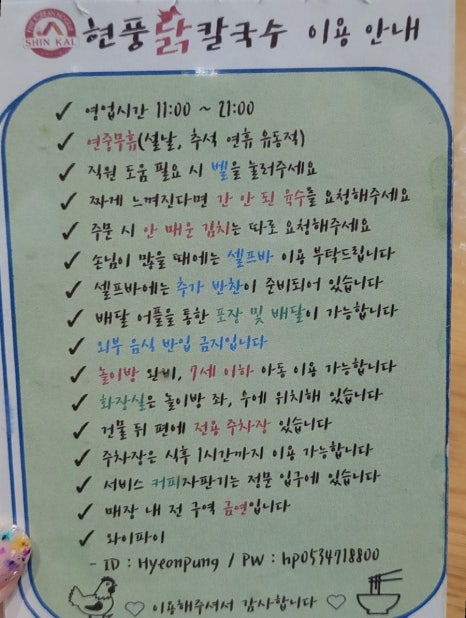 SHIN KAL
현풍닭칼국수 이용 안내
✓ 영업시간 11:00 ~ 21:00
✓ 연중무휴(설날, 추석 연휴 유동적)
✓ 직원 도움 필요 시 벨을 눌러주세요
✓ 짜게 느껴진다면 간 안 된 육수를 요청해주세요
✓ 주문 시 안 매운 김치는 따로 요청해주세요
✓ 손님이 많을 때에는 셀프바 이용 부탁드립니다
✓ 셀프바에는 추가 반찬이 준비되어 있습니다
✓ 배달 어플을 통한 포장 및 배달이 가능합니다
✓ 외부 음식 반입 금지입니다
✓ 놀이방 완비, 7세 이하 아동 이용 가능합니다
✓ 화장실은 놀이방 좌, 우에 위치해 있습니다
✓ 건물 뒤 편에 전용 주차장 있습니다
✓ 주차장은 식후 1시간까지 이용 가능합니다
✓ 서비스 커피자판기는 정문 입구에 있습니다
✓ 매장 내 전 구역 금연입니다
✓ 와이파이
- ID : Hyeonpung / PW : hp0534718800
♡ 이용해주셔서 감사합니다 ♡